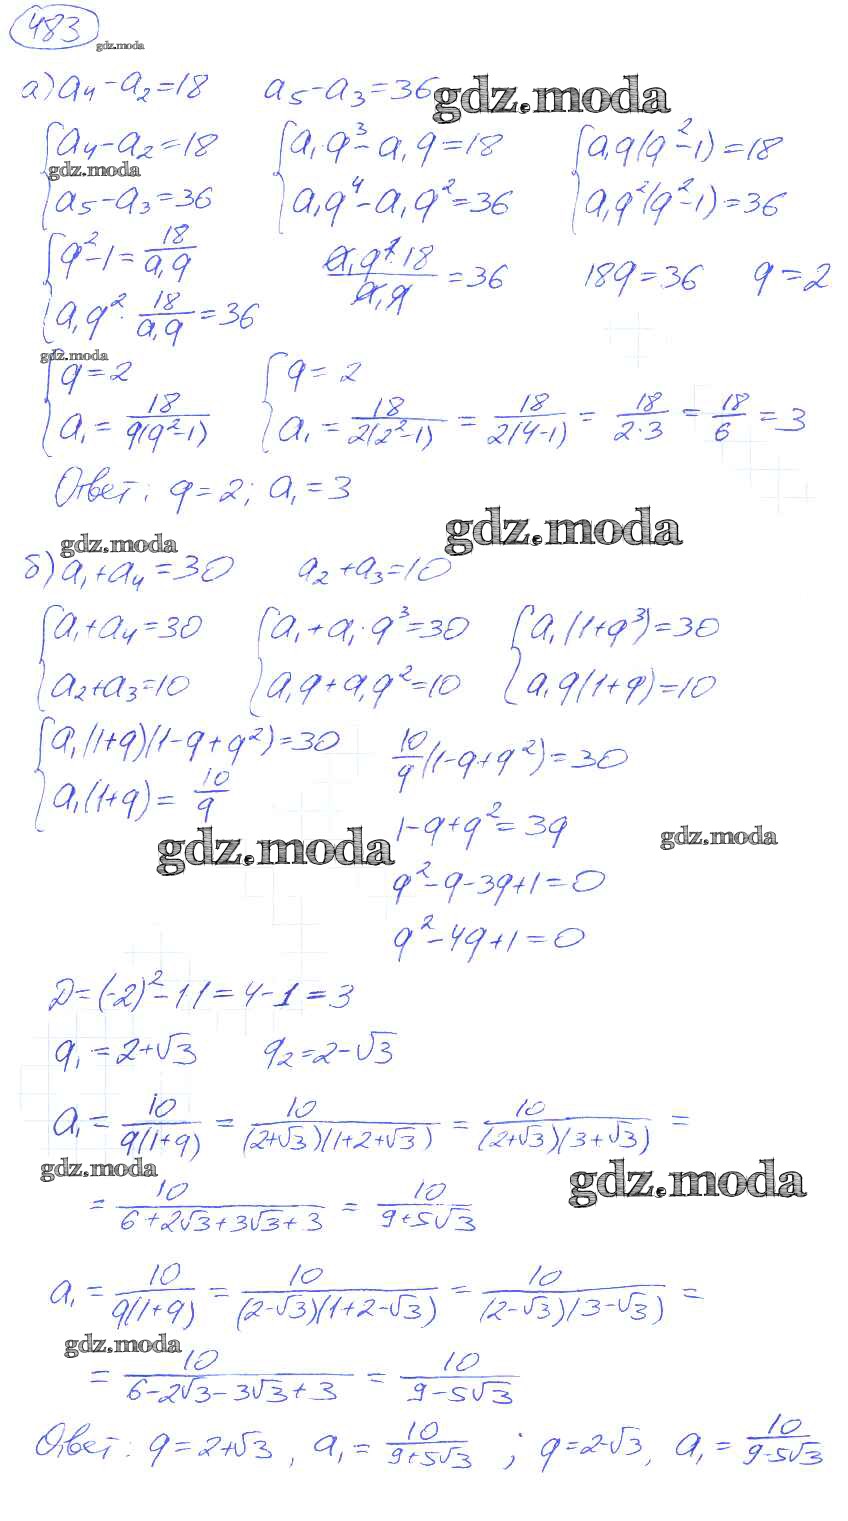 483
gdz.moda
а) a₄-a₂=18 a₅-a₃=36 gdz.moda
{a₄-a₂=18 {a₁q³-a₁q=18 {a₁q(q²-1)=18
gdz.moda
{a₅-a₃=36 {a₁q⁴-a₁q²=36 {a₁q²(q²-1)=36
{q²-1=18/(a₁q) (a₁q²·18)/(a₁q)=36 18q=36 q=2
{a₁q²·18/(a₁q)=36
gdz.moda
{q=2 {q=2
{a₁=18/(q(q²-1)) {a₁=18/(2(2²-1))=18/(2(4-1))=18/(2·3)=18/6=3
Ответ: q=2; a₁=3
gdz.moda
gdz.moda
б) a₁+a₄=30 a₂+a₃=10
{a₁+a₄=30 {a₁+a₁·q³=30 {a₁(1+q³)=30
{a₂+a₃=10 {a₁q+a₁q²=10 {a₁q(1+q)=10
{a₁(1+q)(1-q+q²)=30 10/q(1-q+q²)=30
{a₁(1+q)=10/q
1-q+q²=3q
gdz.moda gdz.moda
q²-q-3q+1=0
q²-4q+1=0
Д=(-2)²-1·1=4-1=3
q₁=2+√3 q₂=2-√3
a₁=10/(q(1+q))=10/((2+√3)(1+2+√3))=10/((2+√3)(3+√3))=
gdz.moda gdz.moda
=10/(6+2√3+3√3+3)=10/(9+5√3)
a₁=10/(q(1+q))=10/((2-√3)(1+2-√3))=10/((2-√3)(3-√3))=
gdz.moda
=10/(6-2√3-3√3+3)=10/(9-5√3)
Ответ: q=2+√3, a₁=10/(9+5√3); q=2-√3, a₁=10/(9-5√3)